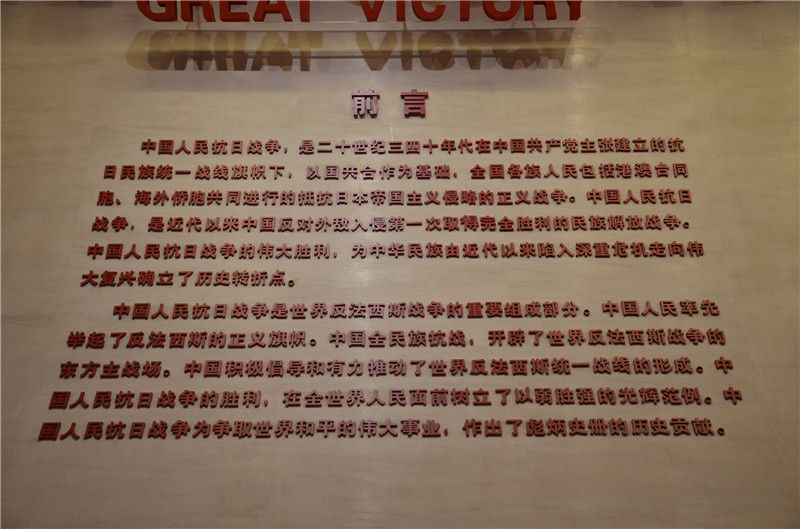 GREAT VICTORY
前言
中国人民抗日战争，是二十世纪三四十年代在中国共产党主张建立的抗
日民族统一战线旗帜下，以国共合作为基础，全国各族人民包括港澳台同
胞、海外侨胞共同进行的抵抗日本帝国主义侵略的正义战争。中国人民抗日
战争，是近代以来中国反对外敌入侵第一次取得完全胜利的民族解放战争。
中国人民抗日战争的伟大胜利，为中华民族由近代以来陷入深重危机走向伟
大复兴确立了历史转折点。
中国人民抗日战争是世界反法西斯战争的重要组成部分。中国人民率先
举起了反法西斯的正义旗帜。中国全民族抗战，开辟了世界反法西斯战争的
东方主战场。中国积极倡导和有力推动了世界反法西斯统一战线的形成。中
国人民抗日战争的胜利，在全世界人民面前树立了以弱胜强的光辉范例。中
国人民抗日战争为争取世界和平的伟大事业，作出了彪炳史册的历史贡献。